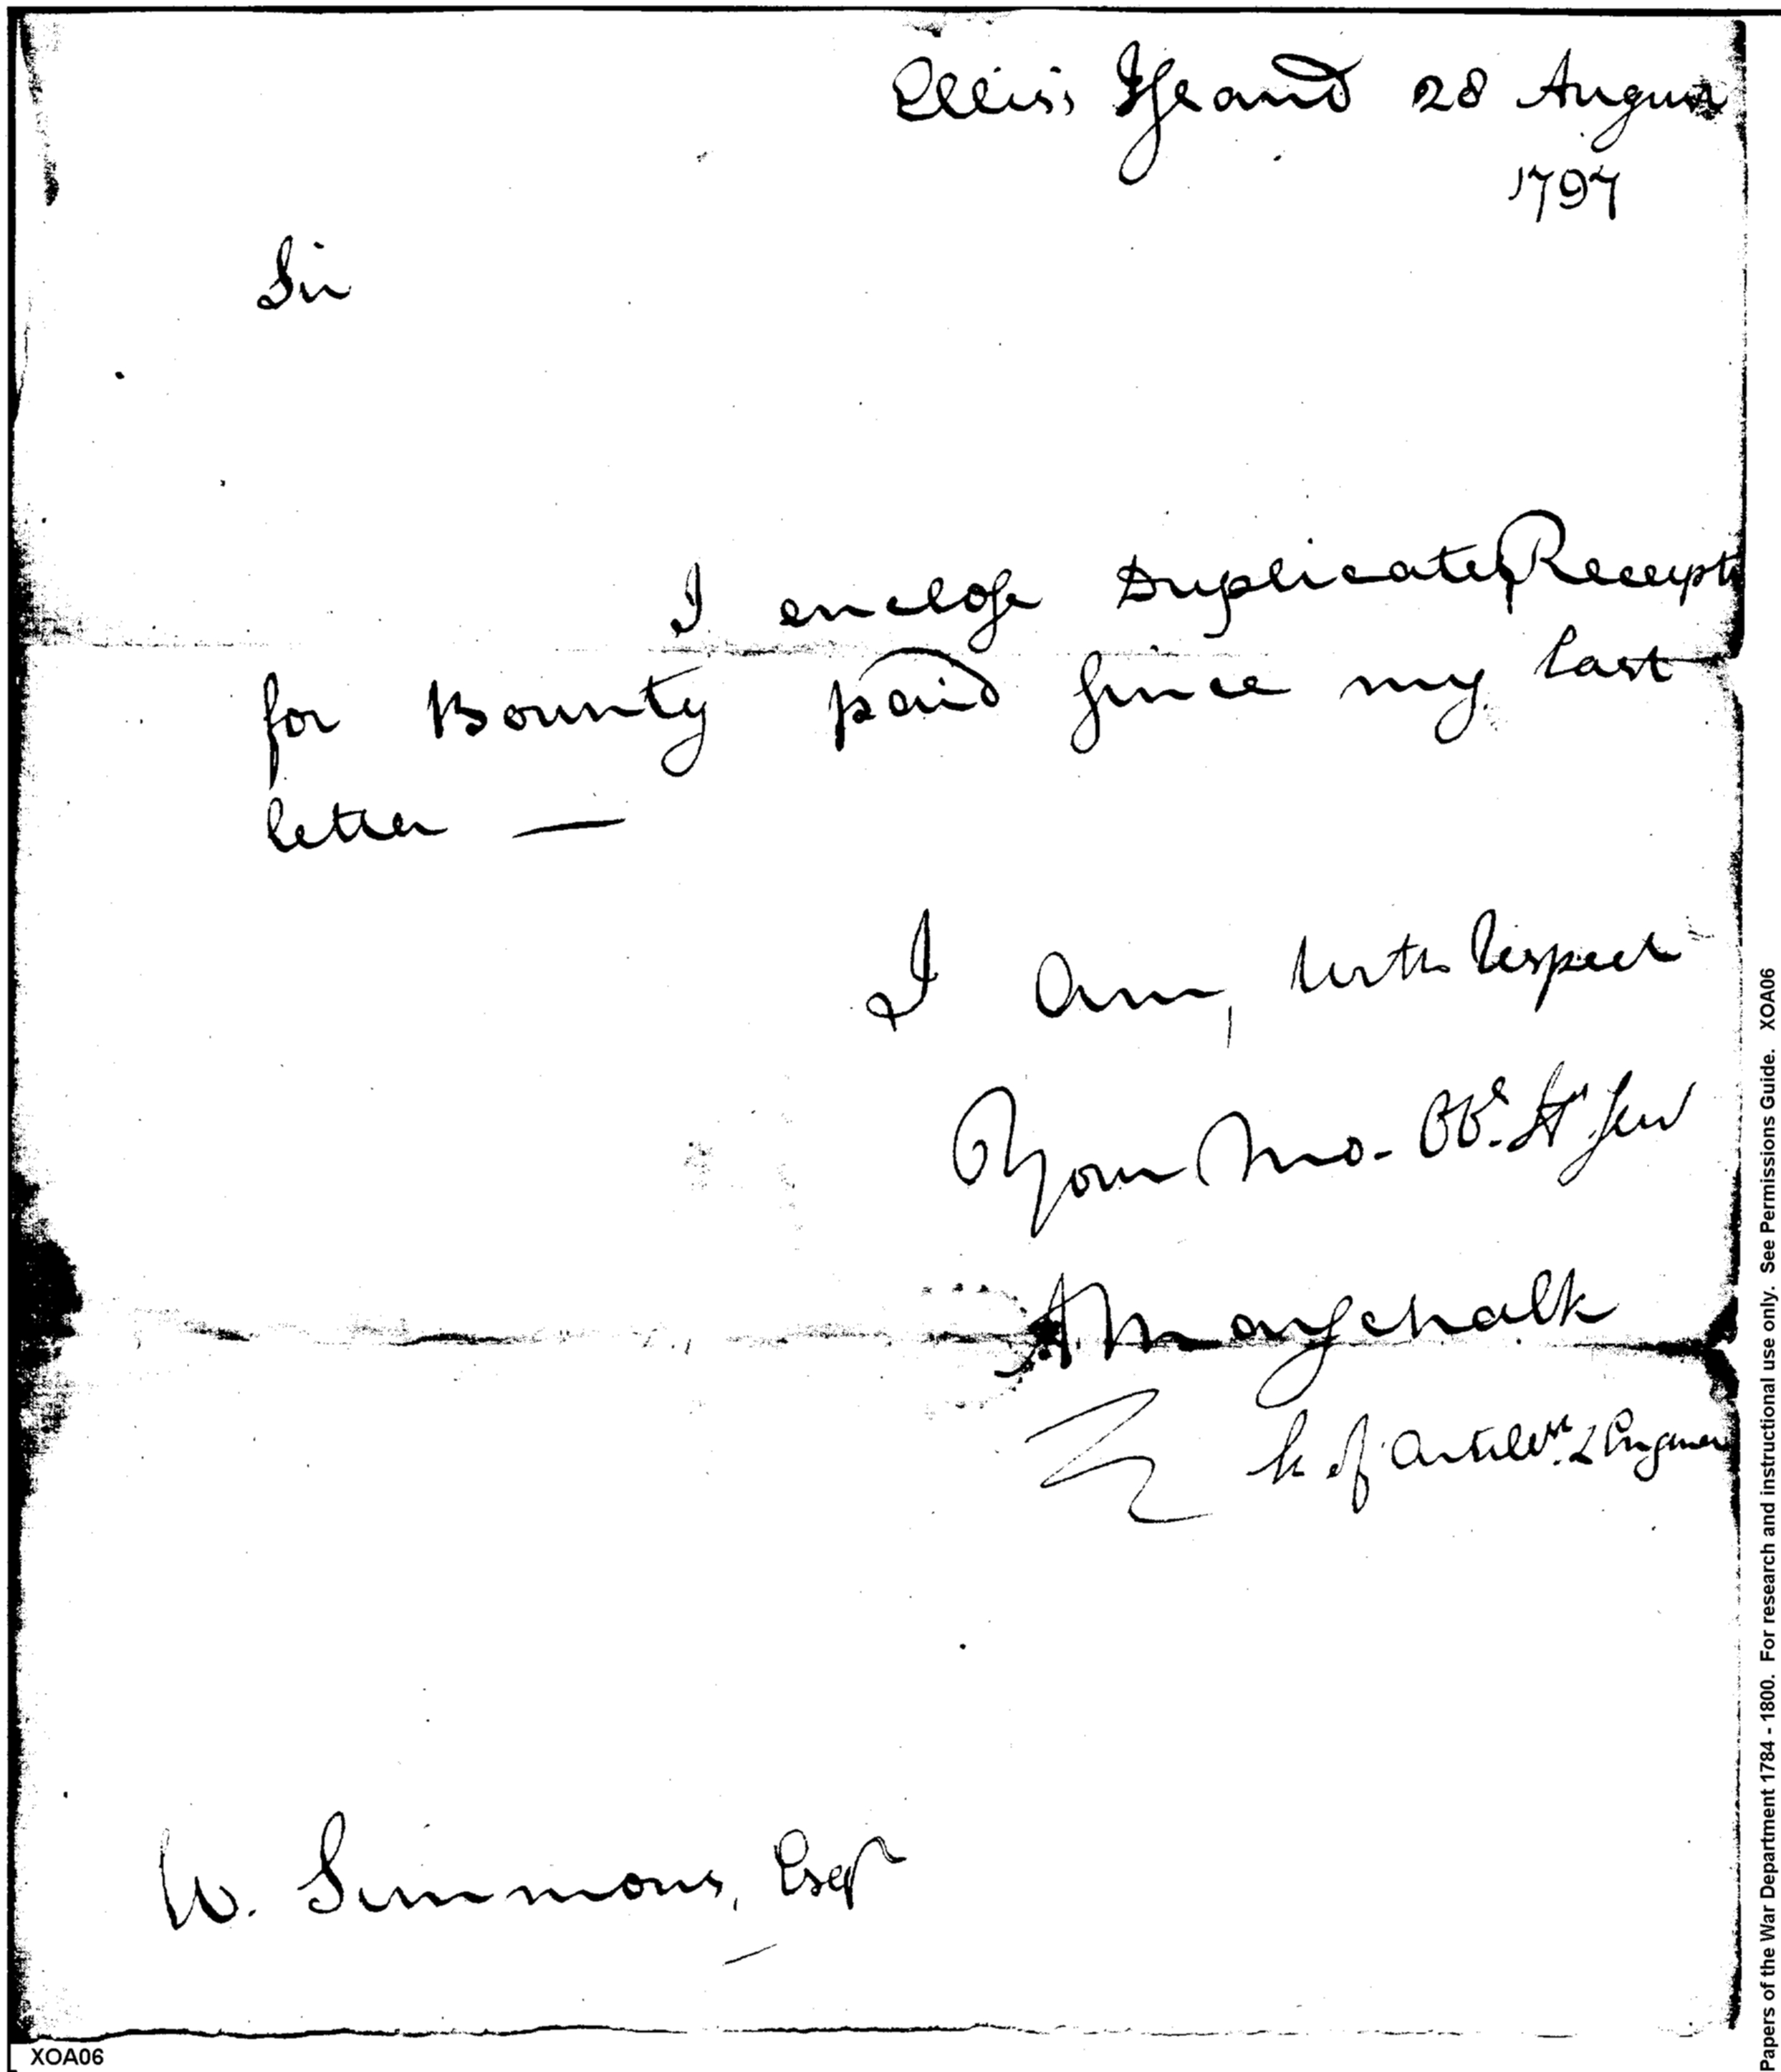 Ellis's Island 28 August
1797
Sir
I enclose Duplicate Receipts
for Bounty paid since my last
letter —
I am, with respect
Your Mo. Ob.
A Marschalk
of Artiller & Engineer
W. Simmons, Esqr
XOA06
Papers of the War Department 1784 - 1800. For research and instructional use only. See Permissions Guide. XOA06